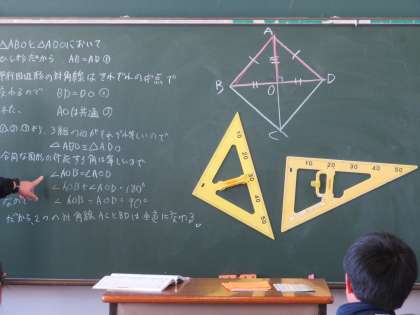 △ABOと△ADOにおいて
ひし形だから AB=AD ①
平行四辺形の対角線はそれぞれの中点で
交わるので BD=DO ②
また、 AOは共通 ③
①②③より、3組の辺がそれぞれ等しいので
△ABO≡△ADO
合同な図形の対応する角は等しいので
∠AOB=∠AOD
∠AOB+∠AOD=180°
∠AOB=∠AOD=90°
だから、2つの対角線ACとBDは垂直に交わる。
A
B
O
D
C
10
20
30
40
50
10
20
30
40
50